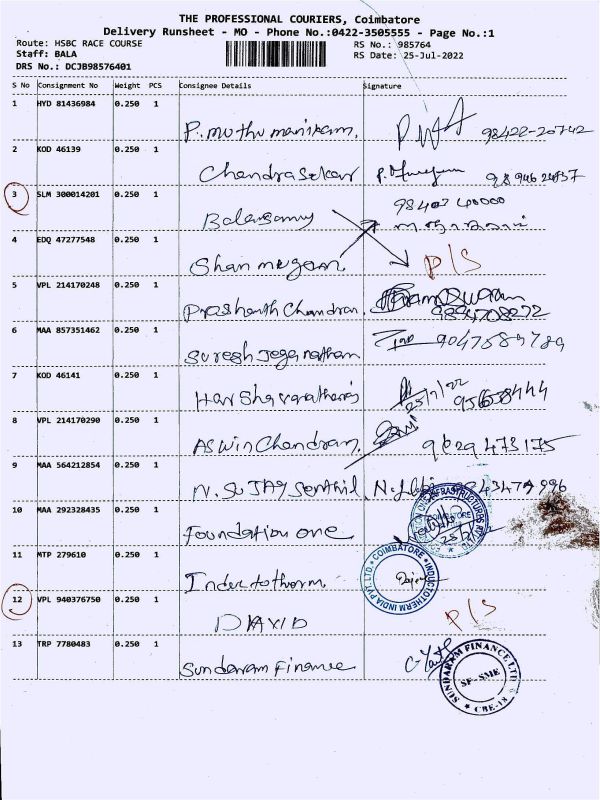 THE PROFESSIONAL COURIERS, Coimbatore
Delivery Runsheet - MO - Phone No.:0422-3505555 - Page No.:1
Route: HSBC RACE COURSE RS No.: 985764
Staff: BALA RS Date: 25-Jul-2022
DRS No.: DCJB98576401
S No Consignment No Weight PCS Consignee Details Signature
1 HYD 81436984 0.250 1
P. Muthu manikam,
2 KOD 46139 0.250 1
Chandrasekar
3 SLM 300014201 0.250 1
98403 40000
Balasamy
4 EDQ 47277548 0.250 1
Shanmugam. P/S
5 VPL 214170248 0.250 1
Prashanth Chandran,
6 MAA 857351462 0.250 1
Suresh Jeganathan
7 KOD 46141 0.250 1
25/7/22
8 VPL 214170290 0.250 1
Aswin Chandran, 9629 473175
9 MAA 564212854 0.250 1
N. SUJAY Senthil
10 MAA 292328435 0.250 1
COIMBATORE
Foundation one
11 MTP 279610 0.250 1
COIMBATORE INDUCTOTHERM INDIA PVT. LTD.
Inductotherm
12 VPL 940376750 0.250 1
DAVID P/S
13 TRP 7780483 0.250 1
Sundaram Finance
SUNDARAM FINANCE LTD
SF-SME
CBE-18